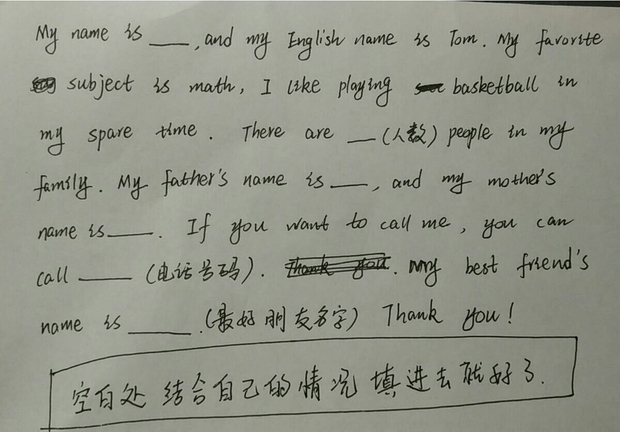 My name is ___, and my English name is Tom. My favorite
subject is math, I like playing basketball in
my spare time. There are __ (人数) people in my
family. My father's name is ___, and my mother's
name is ___. If you want to call me, you can
call ____ (电话号码). Thank you. My best friend's
name is ____. (最好朋友名字) Thank you!
空白处 结合自己的情况 填进去就好了.